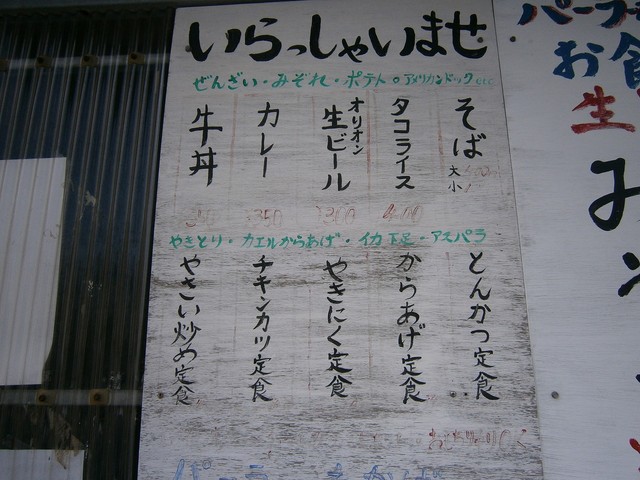 いらっしゃいませ
ぜんざい・みぞれ・ポテト。アメリカンドックetc
そば
大
小
タコライス
400
オリオン
生ビール
300
カレー
350
牛丼
やきとり・カエルからあげ・イカ下足・アスパラ
とんかつ定食
からあげ定食
やきにく定食
チキンカツ定食
やさい炒め定食
お食
生